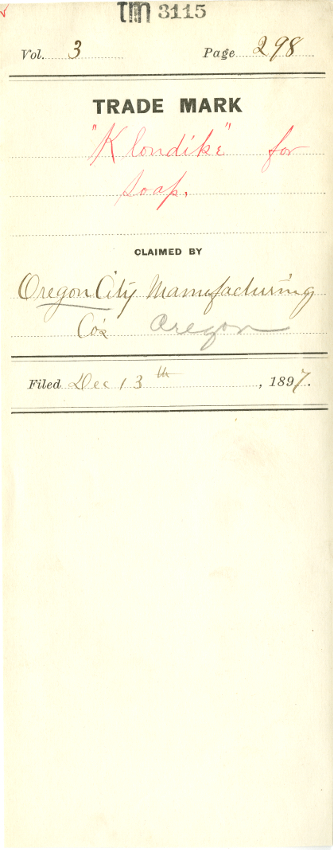 tm 3115
Vol. 3 Page 298
TRADE MARK
"Klondike" for
soap.
CLAIMED BY
Oregon City Manufacturing
Co's Oregon
Filed Dec 13th, 1897.